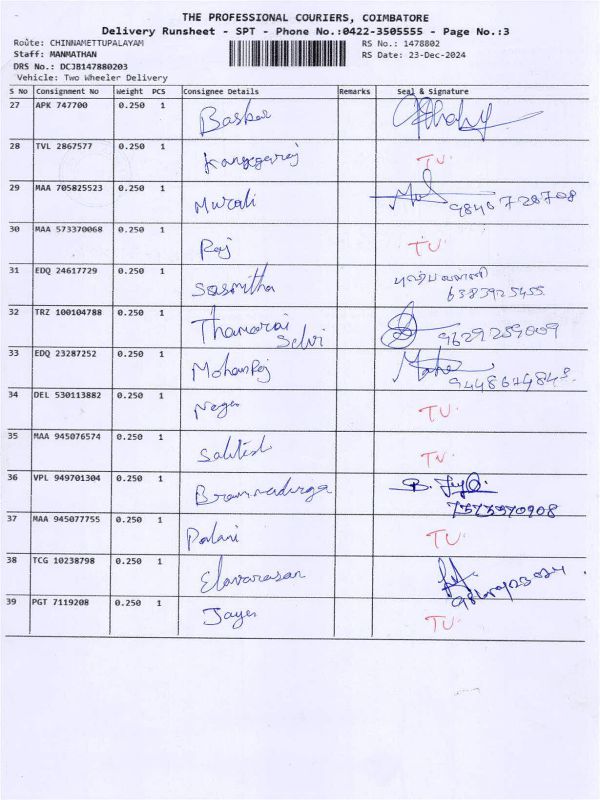 THE PROFESSIONAL COURIERS, COIMBATORE
Delivery Runsheet - SPT - Phone No.:0422-3505555 - Page No.:3
Route: CHINNAMETTUPALAYAM RS No.: 1478802
Staff: MANMATHAN RS Date: 23-Dec-2024
DRS No.: DCJB147880203
Vehicle: Two Wheeler Delivery
S No Consignment No Weight PCS Consignee Details Remarks Seal & Signature
27 APK 747700 0.250 1 Baskar
28 TVL 2867577 0.250 1 TU
29 MAA 705825523 0.250 1 Murali
30 MAA 573370068 0.250 1 Raj TU
31 EDQ 24617729 0.250 1 Sasmitha
6383925455
32 TRZ 100104788 0.250 1 Thamarai
Selvi 9629259009
33 EDQ 23287252 0.250 1 MohanRaj
34 DEL 530113882 0.250 1 TU
35 MAA 945076574 0.250 1 TU
36 VPL 949701304 0.250 1
37 MAA 945077755 0.250 1 Palani TU
38 TCG 10238798 0.250 1 Elavarasan
39 PGT 7119208 0.250 1 TU